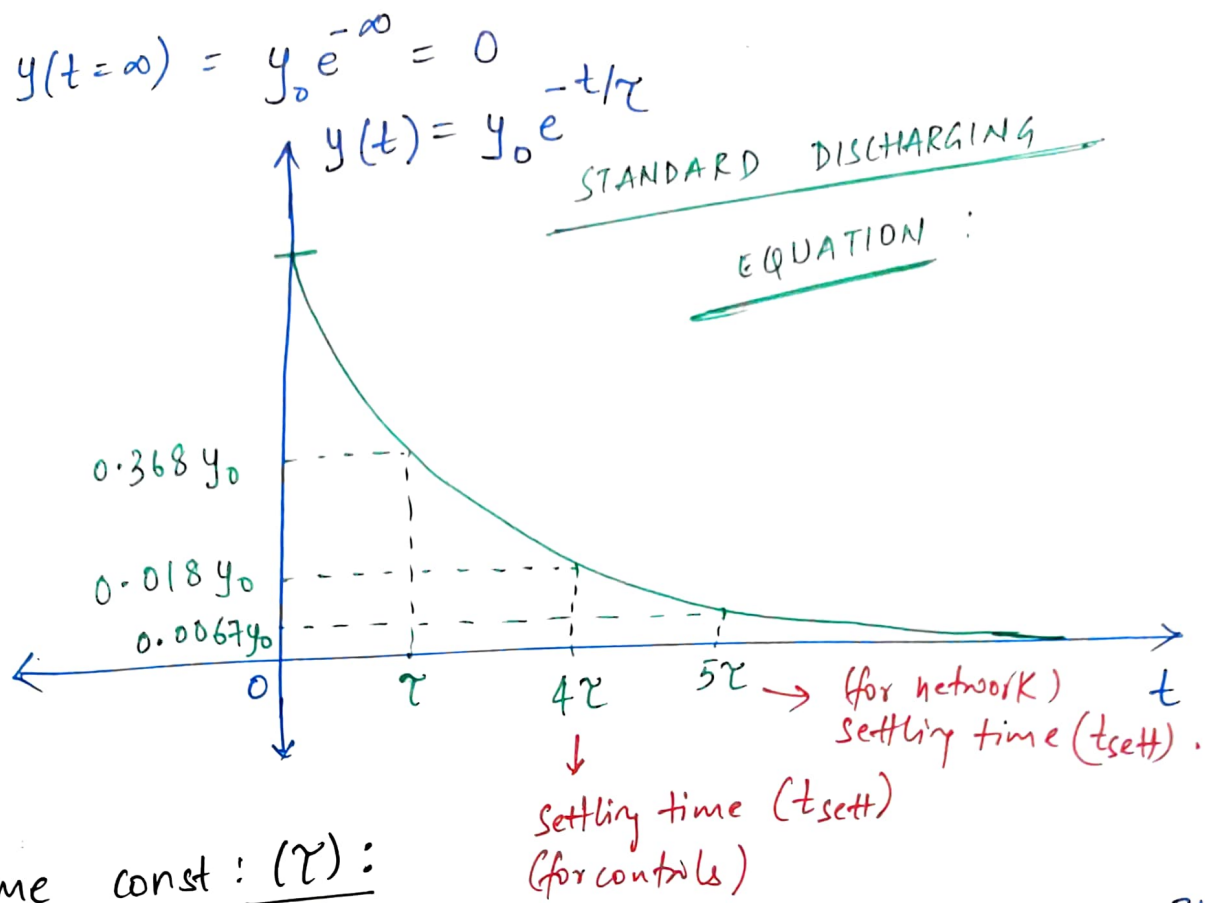 y(t=∞) = y₀e^-∞ = 0
y(t) = y₀e^-t/τ
STANDARD DISCHARGING
EQUATION :
0.368 y₀
0.018 y₀
0.0067y₀
0 τ 4τ 5τ → (for network) t
settling time (tsett).
↓
settling time (tsett)
(for controls)
me const : (τ) :